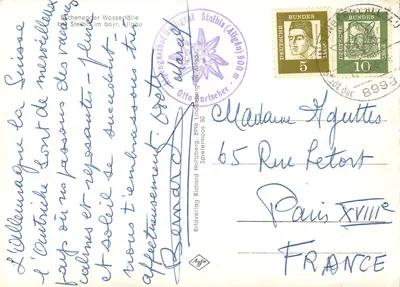 Buchenegger Wasserfälle
bei Steibis im bayr. Allgäu
L'Allemagne la Suisse
l'Autriche sont de merveilleux
pays où nous passons des vacances
calmes et reposantes - pluie
et soleil se succèdent -
nous t'embrassons très
affectueusement.
Bernard
Steibis (Allgäu)
Otto
Bildverlag Richard Holzberg, 899
30
Agfa
DEUTSCHE BUNDESPOST
5
DEUTSCHE BUNDESPOST
10
899
Madame Aguttes
65 Rue Letort
Paris XVIIIe
FRANCE